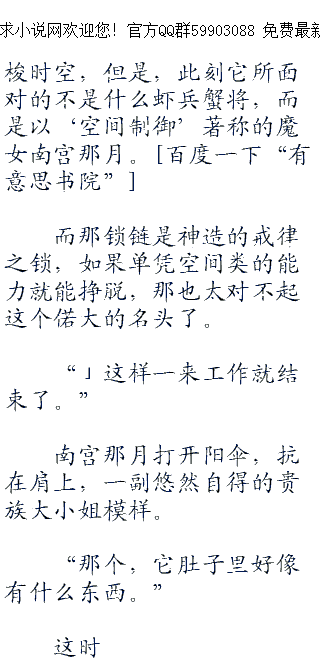 求小说网欢迎您! 官方QQ群59903088 免费最新
梭时空，但是，此刻它所面
对的不是什么虾兵蟹将，而
是以‘空间制御’著称的魔
女南宫那月。[百度一下“有
意思书院”]
而那锁链是神造的戒律
之锁，如果单凭空间类的能
力就能挣脱，那也太对不起
这个偌大的名头了。
“」这样一来工作就结
束了。”
南宫那月打开阳伞，抗
在肩上，一副悠然自得的贵
族大小姐模样。
“那个，它肚子里好像
有什么东西。”
这时